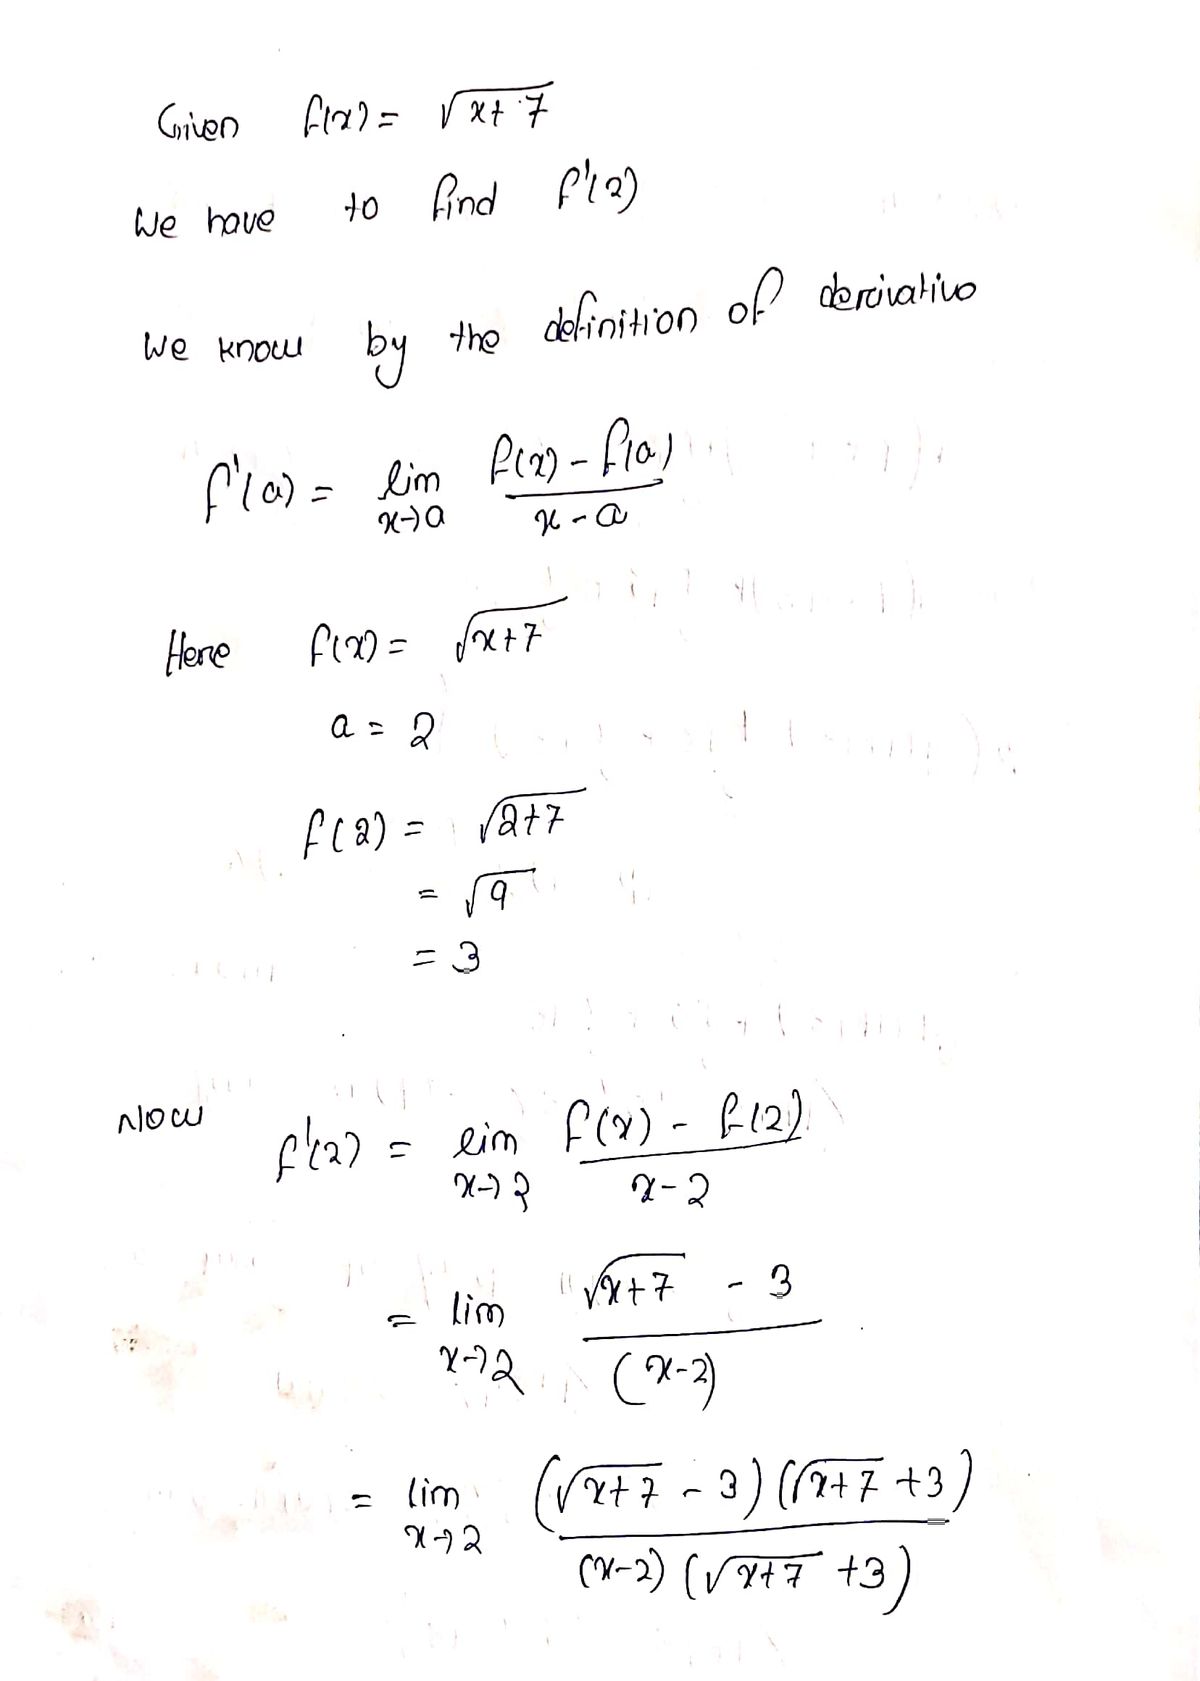 Given f(x) = √(x+7)
We have to find f'(2)
We know by the definition of derivative
f'(a) = lim x→a (f(x) - f(a)) / (x - a)
Here f(x) = √(x+7)
a = 2
f(2) = √(2+7)
= √9
= 3
Now f'(2) = lim x→2 (f(x) - f(2)) / (x-2)
= lim x→2 (√(x+7) - 3) / (x-2)
= lim x→2 (√(x+7) - 3)(√(x+7) +3) / (x-2)(√(x+7) +3)